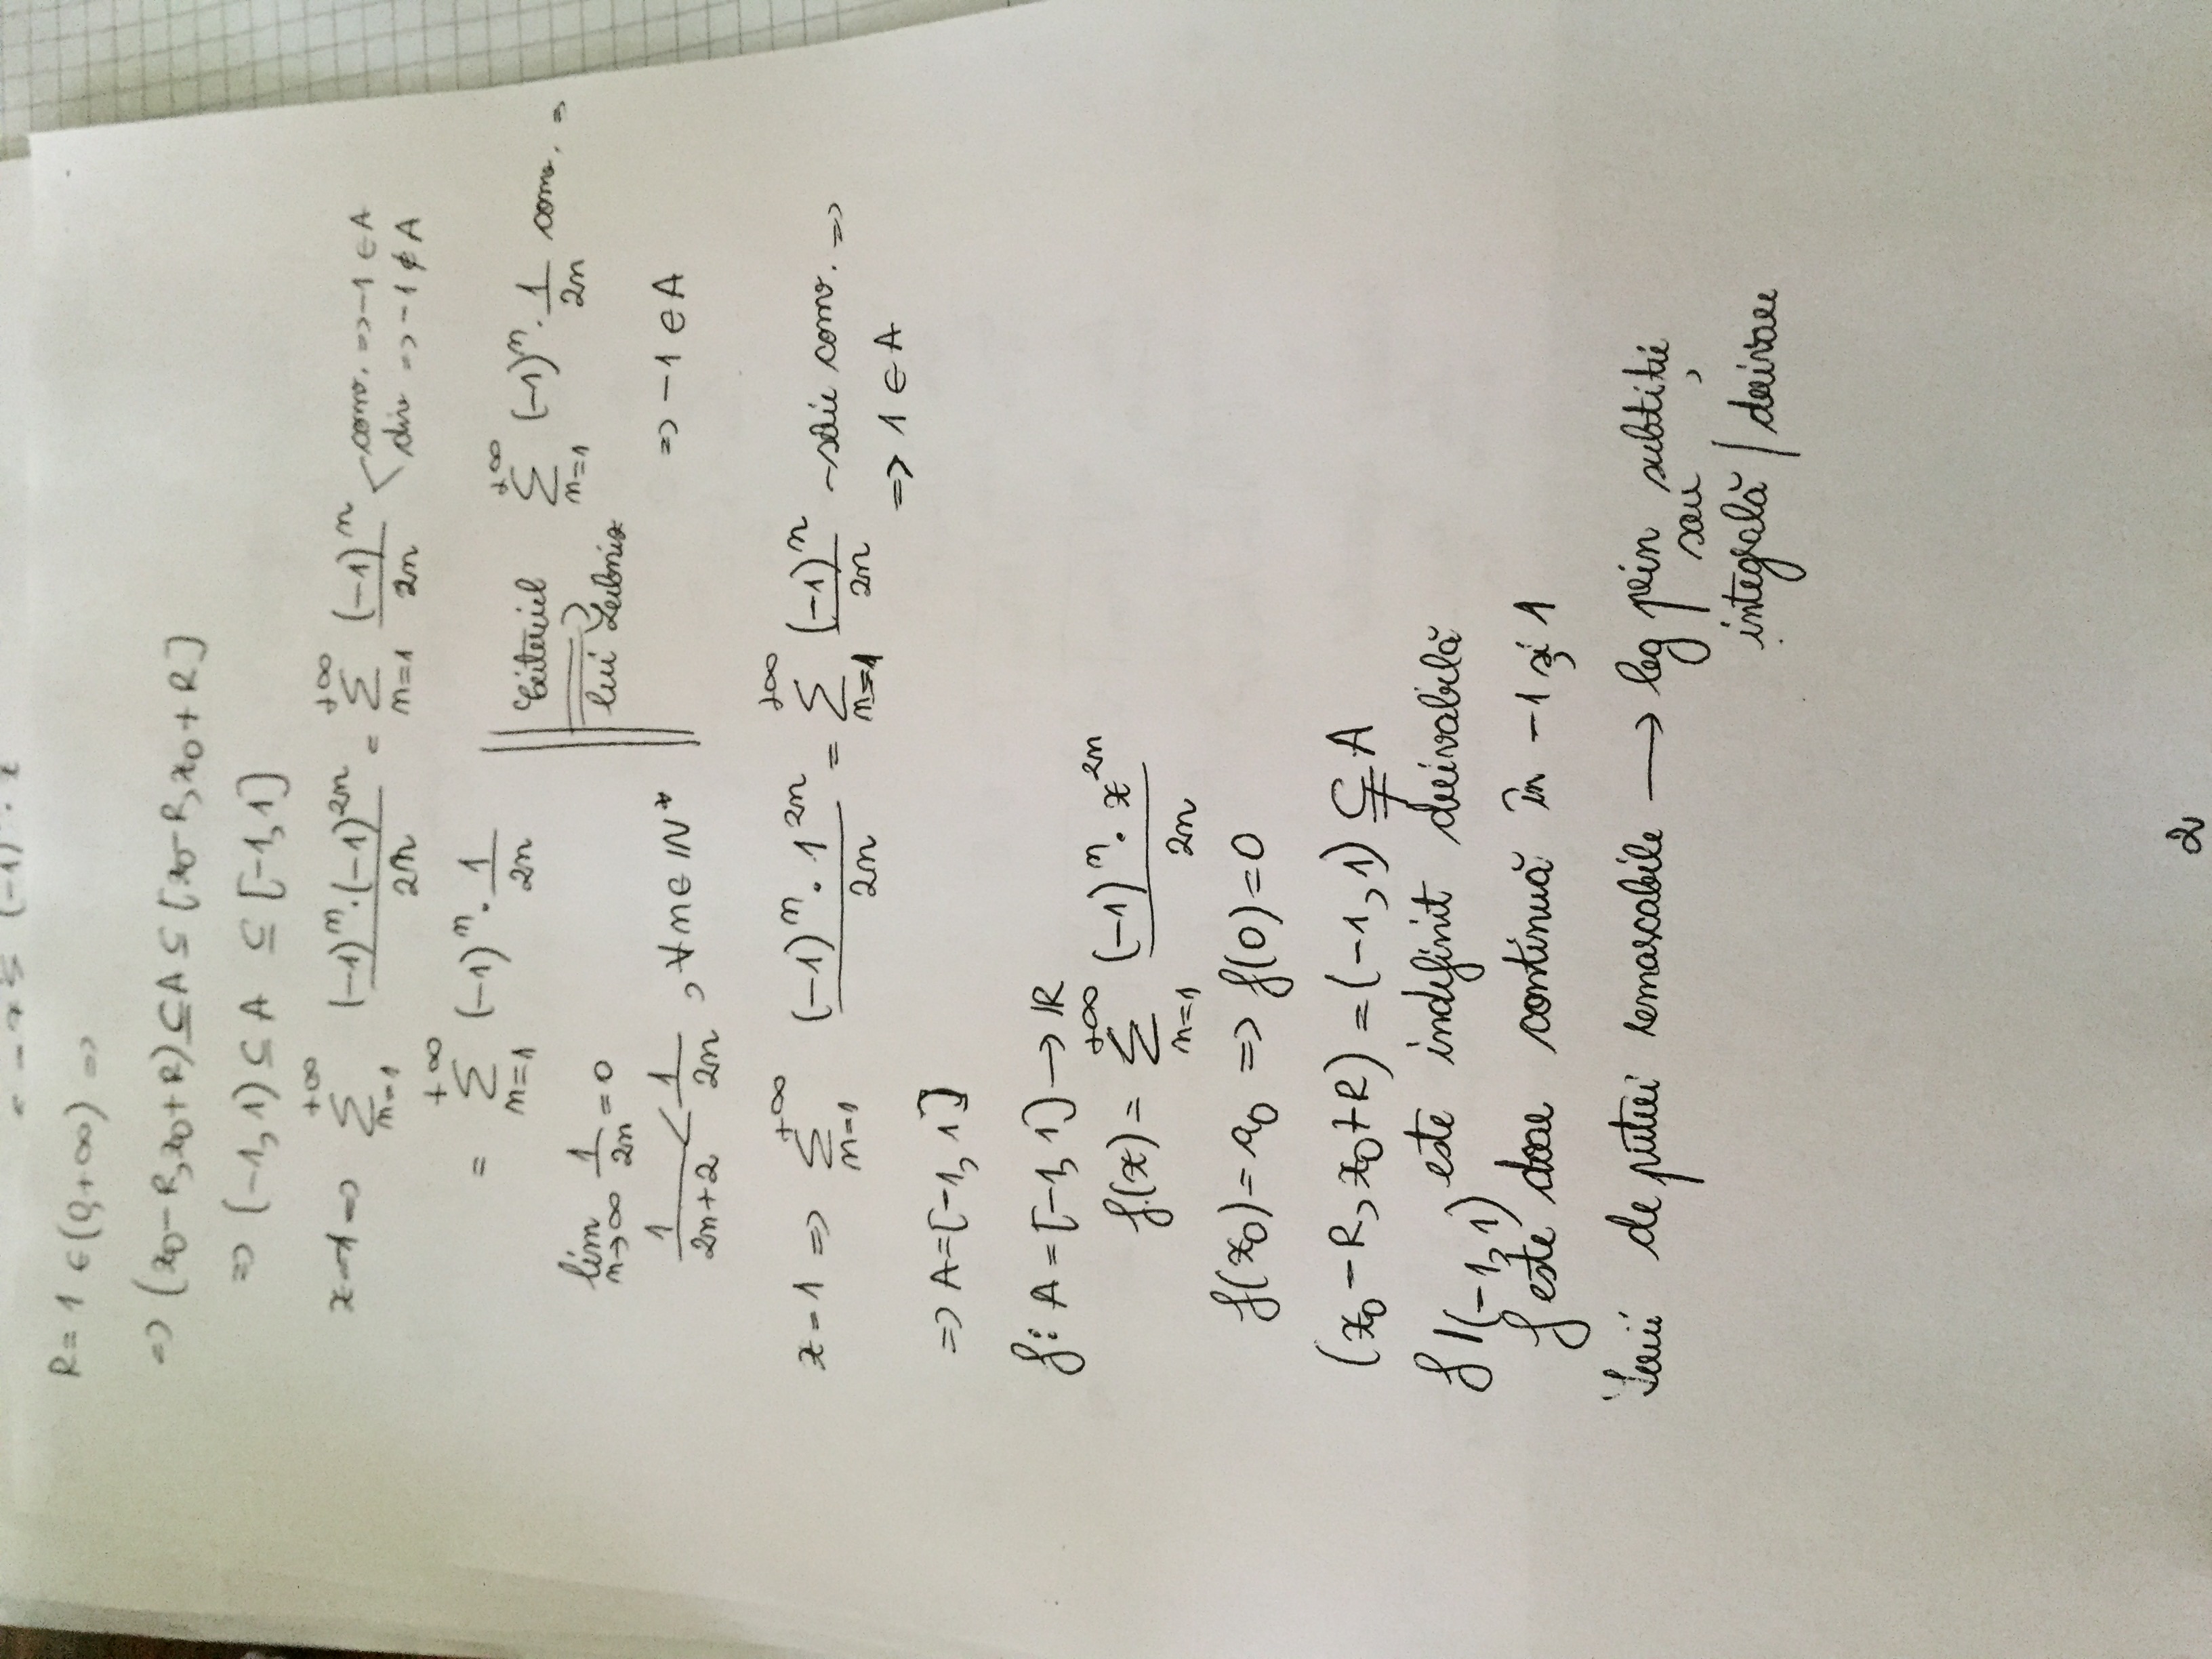 R = 1 ∈ (0, +∞) =>
=> (x₀ - R, x₀ + R) ⊆ A ⊆ [x₀ - R, x₀ + R]
=> (-1, 1) ⊆ A ⊆ [-1, 1]
x = -1 => Σ_{n=1}^{+∞} ((-1)^n · (-1)^{2n}) / 2n = Σ_{n=1}^{+∞} (-1)^n / 2n < conv. => -1 ∈ A
div => -1 ∉ A
= Σ_{n=1}^{+∞} (-1)^n · 1/2n
lim_{n→∞} 1/2n = 0
1/(2n+2) < 1/2n , ∀ n ∈ ℕ*
Criteriul lui Leibniz => Σ_{n=1}^{+∞} (-1)^n · 1/2n conv. =>
=> -1 ∈ A
x = 1 => Σ_{n=1}^{+∞} ((-1)^n · 1^{2n}) / 2n = Σ_{n=1}^{+∞} (-1)^n / 2n - serie conv. =>
=> 1 ∈ A
=> A = [-1, 1]
f: A = [-1, 1] → ℝ
f(x) = Σ_{n=1}^{+∞} ((-1)^n · x^{2n}) / 2n
f(x₀) = a₀ => f(0) = 0
(x₀ - R, x₀ + R) = (-1, 1) ⊊ A
f|(-1, 1) este indefinit derivabilă
f este doar continuă în -1 și 1
Serii de puteri remarcabile → leg prin subtiție
sau
integrală / derivare
2